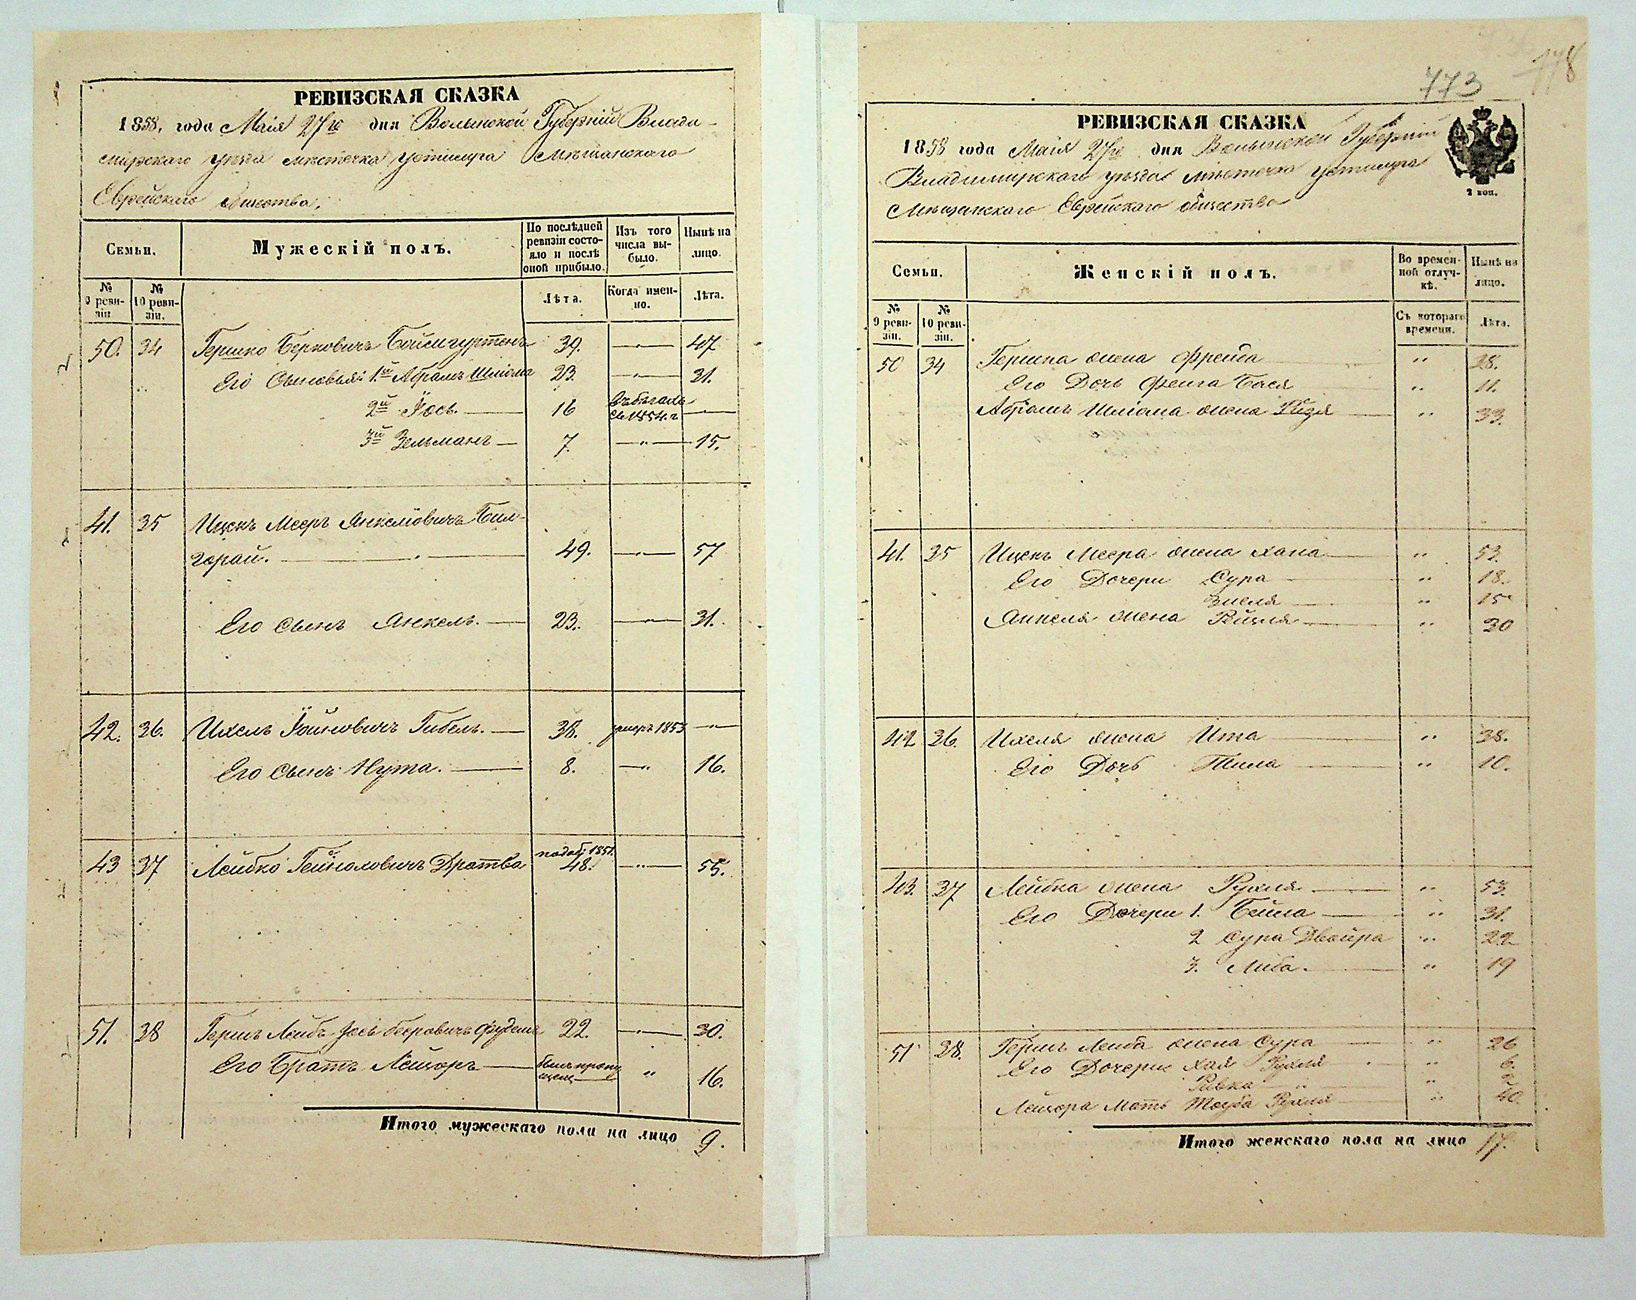 РЕВИЗСКАЯ СКАЗКА
1858, года Маія 27го дня Волынской Губерній Влади-
мірскаго уѣзда мѣстечка Устилуга Мѣщанскаго
Еврейскаго общества.
Семьи.
Мужескій полъ.
По послѣдней ревизіи состояло и послѣ оной прибыло.
Изъ того числа выбыло.
Нынѣ на лицо.
№ 9 ревизіи
№ 10 ревизіи.
Лѣта.
Когда именно.
Лѣта.
50. 34 Гершко Берковичъ 39. —"— 47
Его Сыновья: 1й Абрамъ Шлиома 23. —"— 31.
2й Іось. — 16 —
3й Зельманъ — 7. —"— 15.
41. 35 Ицекъ Мееръ Янкелiовичъ Бил-
горай. — 49. —"— 57
Его сынъ Янкель. — 23. —"— 31.
42. 36. Ихель Гибель. — 38. умеръ 1853 —"—
Его сынъ Нута. — 8. —"— 16.
43 37 Лейбко Дратва 48. —"— 55.
51. 38 Гершъ Лейбъ Іось 22. —"— 30.
Его Братъ Лейзоръ — " 16.
Итого мужескаго пола на лицо 9.
773
778
РЕВИЗСКАЯ СКАЗКА
1858 года Маія 27го дня Волынской Губерній
Владимирскаго уѣзда мѣстечка Устилуга
Мѣщанскаго Еврейскаго общества
2 коп.
Семьи.
Женскій полъ.
Во временной отлучкѣ.
Нынѣ на лицо.
№ 9 ревизіи.
№ 10 ревизіи.
Съ котораго времени.
Лѣта.
50 34 Гершка жена Фрейда — " 28.
Его Дочь Фейга Бася — " 11.
Абрамъ Шлиома жена Рйзя — " 33.
41. 35 Ицекъ Меера жена Хана — " 53.
Его Дочери Сура — " 18.
— " 15
Янкеля жена Рйзля — " 30
42 36. Ихеля жена Ита — " 38.
Его Дочь — " 10.
43. 37 Лейбка жена Рухля — " 53.
Его Дочери 1. Бейла — " 31.
2 Сура Двойра " 22
3. Либа. — " 19
51 38. Гершъ Лейба жена Сура — " 26
Его Дочери Хая Рухля " 6.
Ривка — "
Лейзора Мать Тауба Рухля — " 40.
Итого женскаго пола на лицо 17.